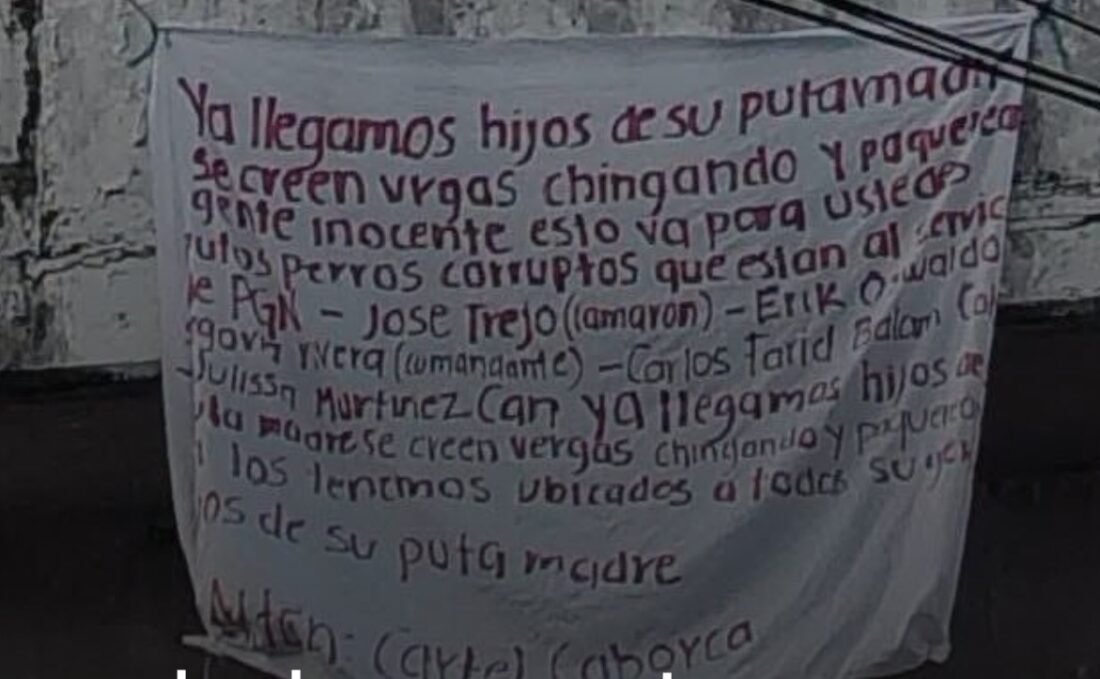 Ya llegamos hijos de su putamadr
se creen vrgas chingando y paquerear
gente inocente esto va para ustedes
putos perros corruptos que estan al servic
de PGN - Jose Trejo (Camaron) - Erik Oswaldo
rivera (comandante) - Carlos Farid Balam
- Julissa Martinez Can ya llegamos hijos de
puta madre se creen vergas chingando y
los tenemos ubicados a todos su
de su puta madre
Cartel Caborca